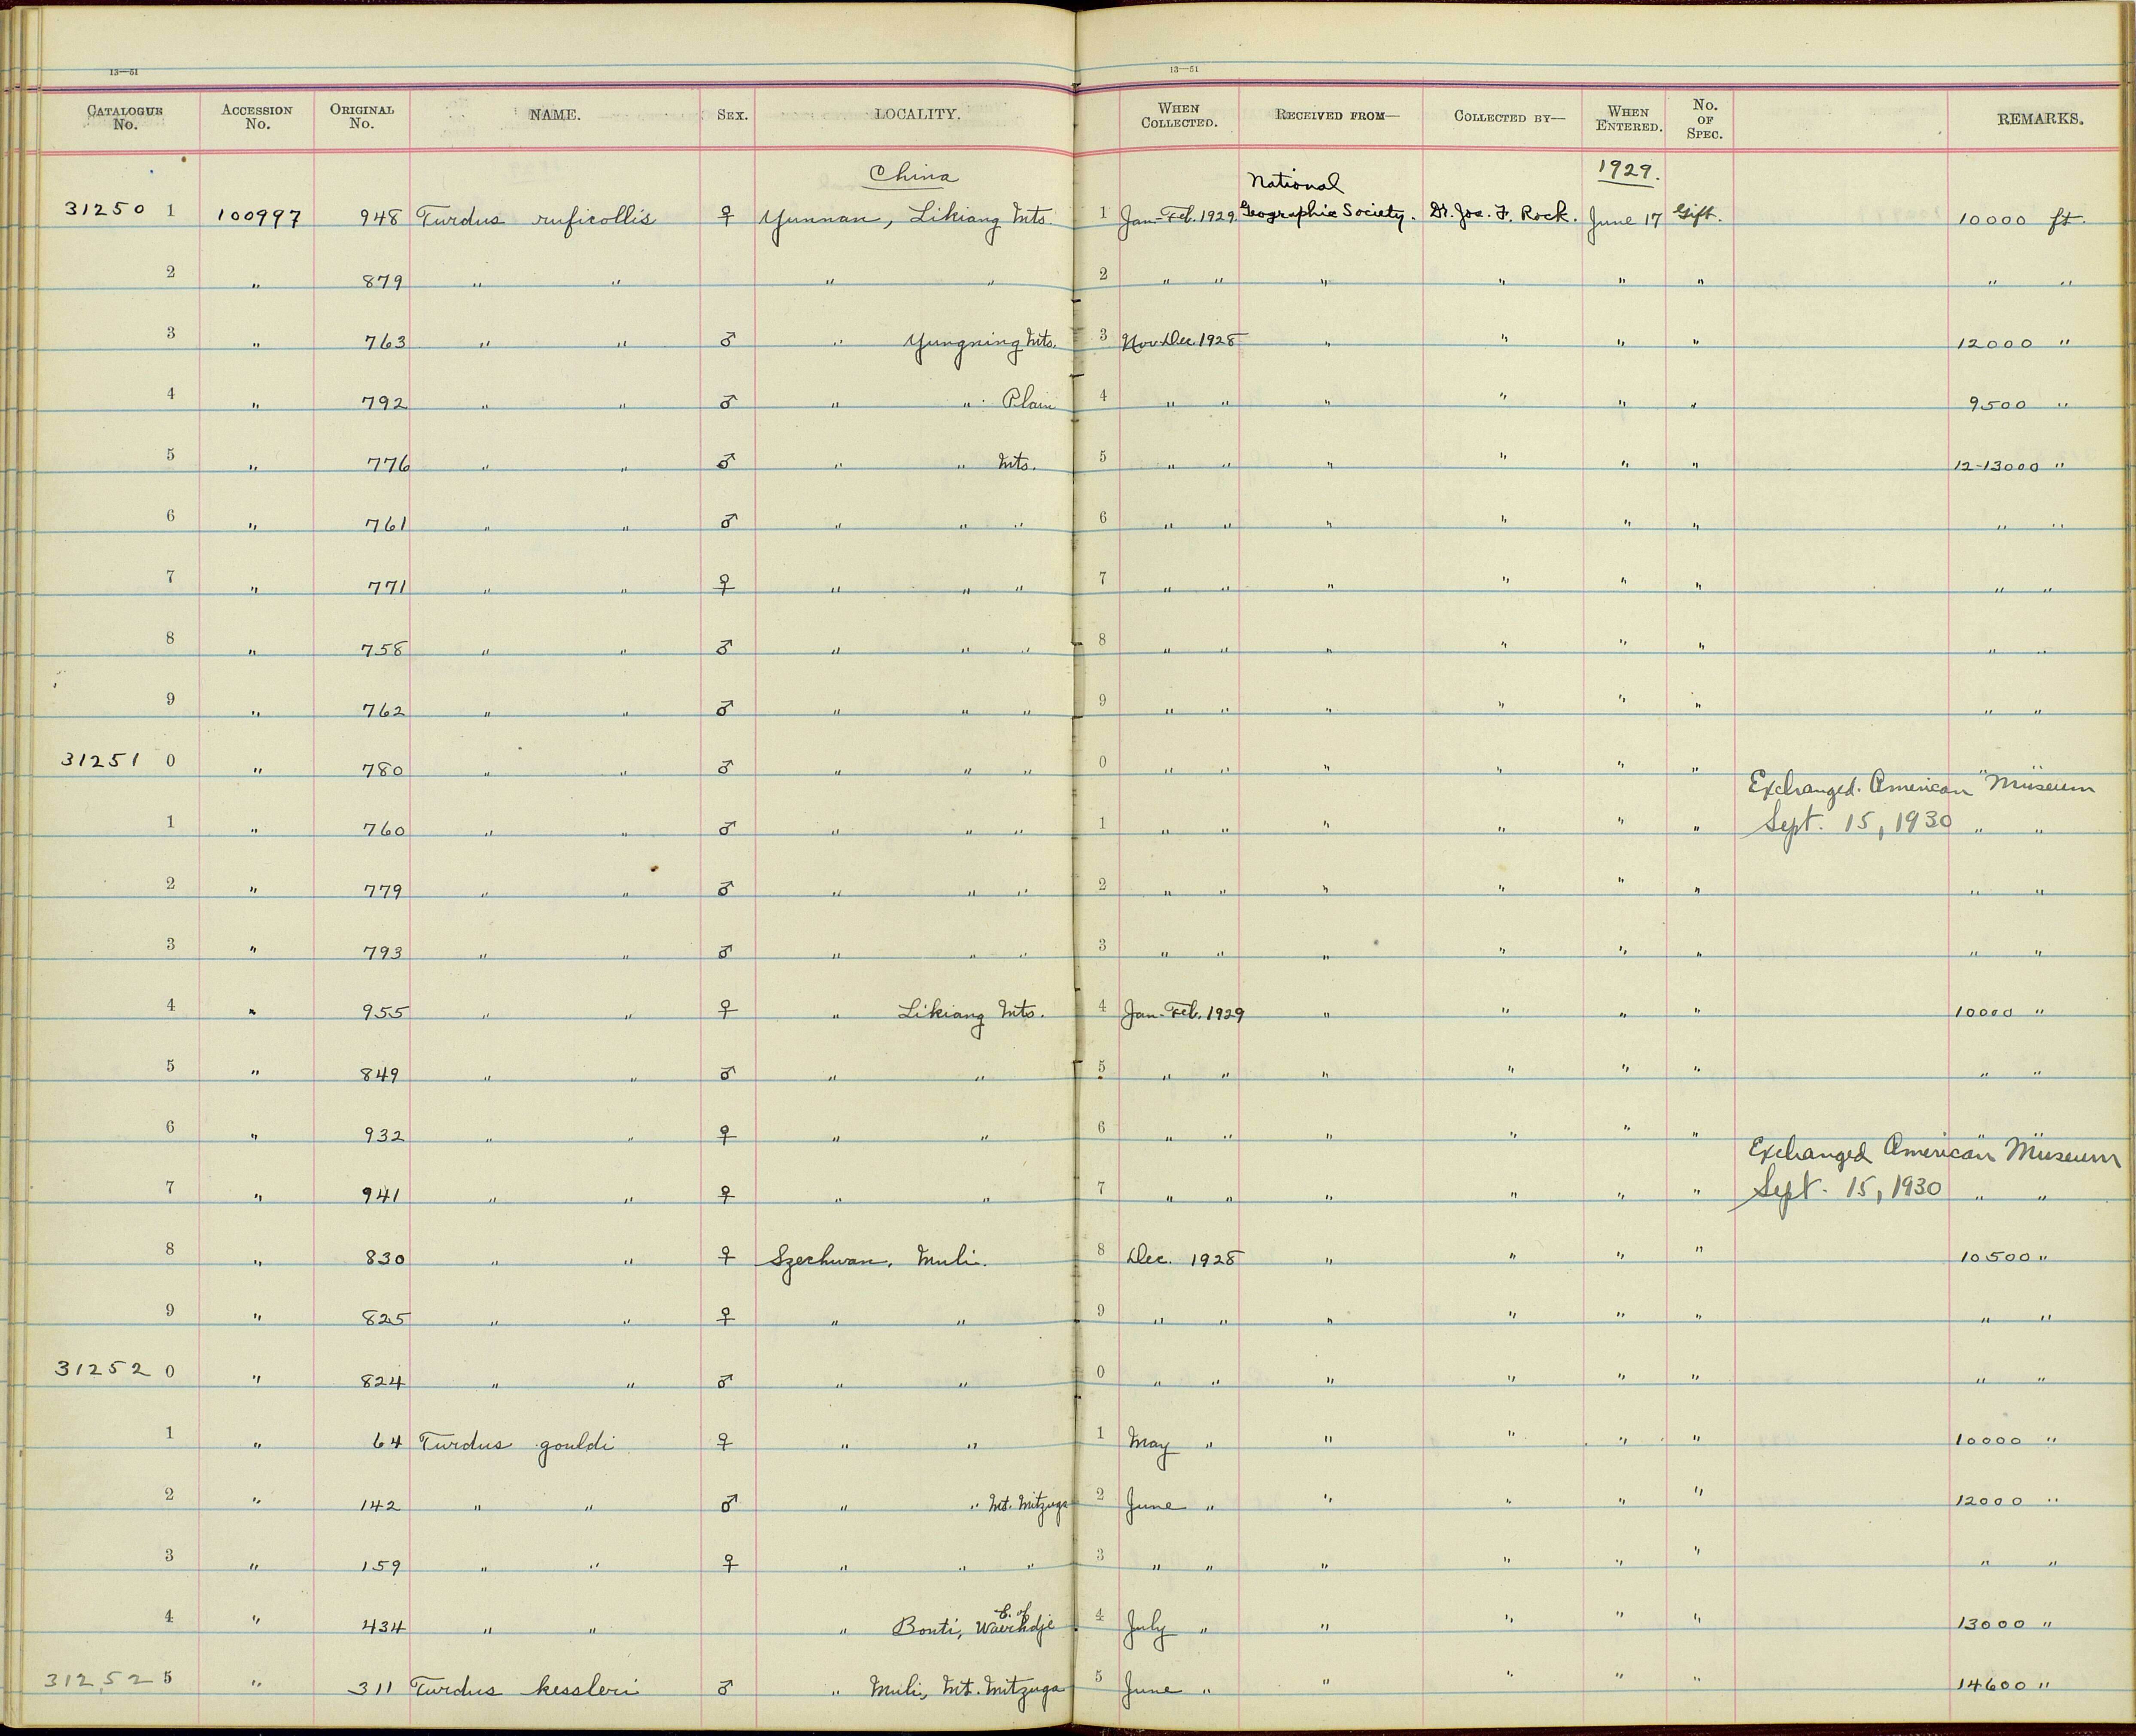 13—51 13—51
CATALOGUE No. ACCESSION No. ORIGINAL No. NAME. SEX. LOCALITY. WHEN COLLECTED. RECEIVED FROM— COLLECTED BY— WHEN ENTERED. No. OF SPEC. REMARKS.
China 1929.
31250 1 100997 948 Turdus ruficollis ♀ Yunnan, Likiang Mts. 1 Jan-Feb. 1929. National Geographic Society. Dr. Jos. F. Rock. June 17 Gift. 10000 ft.
2 " 879 " " " " 2 " " " " " " " "
3 " 763 " " ♂ " Yungning Mts. 3 Nov-Dec. 1928 " " " " 12000 "
4 " 792 " " ♂ " " Plain 4 " " " " " " 9500 "
5 " 776 " " ♂ " " Mts. 5 " " " " " " 12-13000 "
6 " 761 " " ♂ " " " 6 " " " " " " " "
7 " 771 " " ♀ " " " 7 " " " " " " " "
8 " 758 " " ♂ " " " 8 " " " " " " " "
9 " 762 " " ♂ " " " 9 " " " " " " " "
31251 0 " 780 " " ♂ " " " 0 " " " " " " " "
1 " 760 " " ♂ " " " 1 " " " " " " Exchanged American Museum Sept. 15, 1930 " "
2 " 779 " " ♂ " " " 2 " " " " " " " "
3 " 793 " " ♂ " " " 3 " " " " " " " "
4 " 955 " " ♀ " Likiang Mts. 4 Jan-Feb. 1929 " " " " 10000 "
5 " 849 " " ♂ " " 5 " " " " " " " "
6 " 932 " " ♀ " " 6 " " " " " " " "
7 " 941 " " ♀ " " 7 " " " " " " Exchanged American Museum Sept. 15, 1930 " "
8 " 830 " " ♀ Szechwan, Muli. 8 Dec. 1928 " " " " 10500 "
9 " 825 " " ♀ " " 9 " " " " " " " "
31252 0 " 824 " " ♂ " " 0 " " " " " " " "
1 " 64 Turdus gouldi ♀ " " 1 May " " " " " 10000 "
2 " 142 " " ♂ " " Mt. Mitzuga 2 June " " " " " 12000 "
3 " 159 " " ♀ " " " 3 " " " " " " " "
4 " 434 " " " Bonti, E. of Waerhdje 4 July " " " " " 13000 "
31252 5 " 311 Turdus kessleri ♂ " Muli, Mt. Mitzuga 5 June " " " " " 14600 "